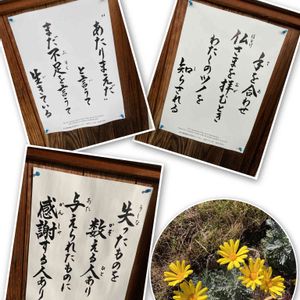 “あたりまえだ”
と言うて
まだ不足を言うて
生きている
手を合わせ
仏さまを拝むとき
わたしのツノを
知らされる
失ったものを
数える人あり
与えられたものに
感謝する人あり